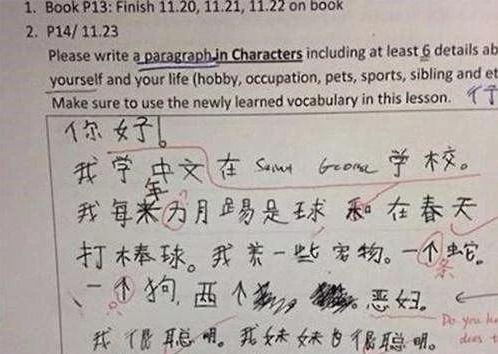 1. Book P13: Finish 11.20, 11.21, 11.22 on book
2. P14/ 11.23
Please write a paragraph in Characters including at least 6 details ab
yourself and your life (hobby, occupation, pets, sports, sibling and et
Make sure to use the newly learned vocabulary in this lesson.
你好!
我学中文在 Saint George 学校。
年
我每月踢球和在春天
打棒球。我养一些宠物。一个蛇。
条
一个狗,两个
Do you ha
does t
我很聪明。我妹妹也很聪明。